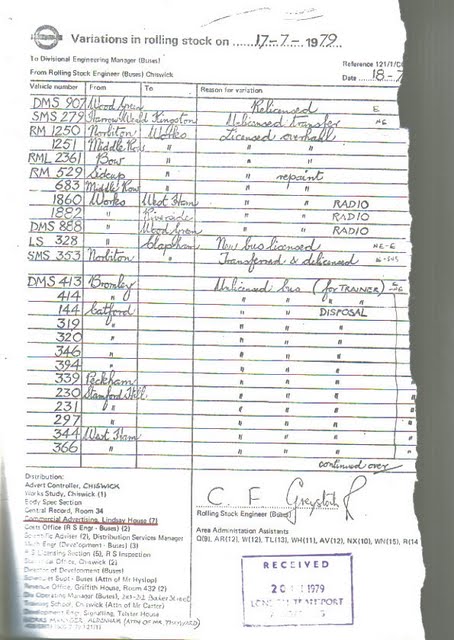 Variations in rolling stock on 17-7-1979
To Divisional Engineering Manager (Buses)
Reference 121/1/
From Rolling Stock Engineer (Buses) Chiswick
Date 18-7
Vehicle number From To Reason for variation
DMS 907 Wood Green Relicensed E
SMS 279 Harrow Weald Kingston Unlicensed Transfer NE
RM 1250 Norbiton Works Licensed overhaul
1251 Middle Row " " "
RML 2361 Bow " " "
RM 529 Sidcup " " repaint
683 Middle Row " " "
1860 Works West Ham " " RADIO
1882 " Riverside " " RADIO
DMS 868 " Wood Green " " RADIO
LS 328 " Clapham New bus licensed NE-E
SMS 353 Norbiton " Transferred & delicensed
DMS 413 Bromley Unlicensed bus (for TRAINER)
414 " " " " "
144 Catford " " DISPOSAL
319 " " " "
320 " " " "
346 " " " "
394 " " " "
339 Peckham " " "
230 Stamford Hill " " "
231 " " " "
297 " " " "
344 West Ham " " "
366 " " " "
continued over
Distribution:
Advert Controller, CHISWICK
Works Study, Chiswick (1)
Body Spec Section
Central Record, Room 34
Commercial Advertising, Lindsay House (7)
Costs Office (R S Engr - Buses) (2)
Scientific Adviser (2), Distribution Services Manager
Engr (Development - Buses) (3)
R S Licensing Section (5), R S Inspection
Statistical Office, Chiswick (2)
Director of Development (Buses)
Schedules Supt - Buses (Attn of Mr Hyslop)
Revenue Office, Griffith House, Room 432 (2)
Operating Manager (Buses), Baker Street
Training School, Chiswick (Attn of Mr Carter)
Development Engr, Signalling, Telstar House
WORKS MANAGER, ALDENHAM (ATTN OF MR
C F
Rolling Stock Engineer (Buses)
Area Administration Assistants
Q(9), AR(12), W(12), TL(13), WH(11), AV(12), NX(10), WN(15), R(14
RECEIVED
1979
LONDON TRANSPORT